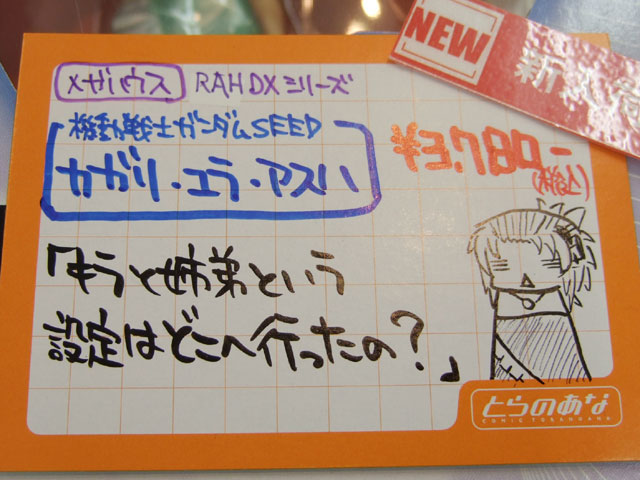 NEW
メガハウス RAHDXシリーズ
機動戦士ガンダムSEED
カガリ・ユラ・アスハ
¥3.780-
(税込)
「キラと姉弟という
設定はどこへ行ったの?」
とらのあな
COMIC TORANOANA